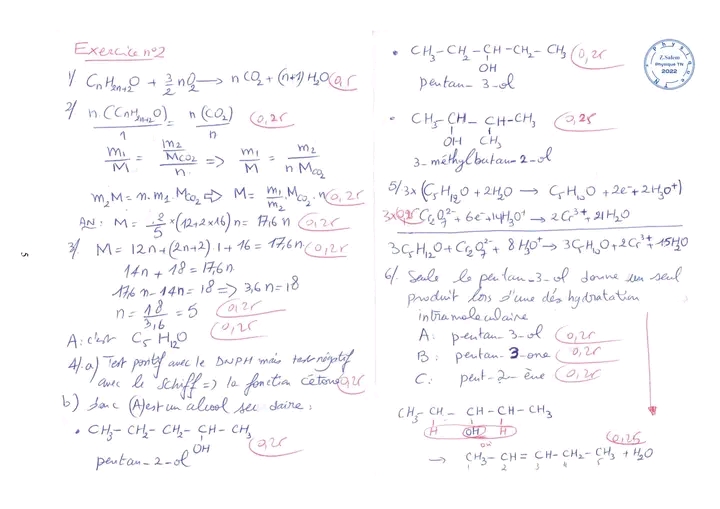 Exercice n°2
1/ CnH2n+2O + 3/2 nO2 → n CO2 + (n+1) H2O 0,25
2/ n(CnH2n+2O)/1 = n(CO2)/n 0,25
m1/M = (m2/MCO2)/n => m1/M = m2/(n MCO2)
m2M = n.m1.MCO2 => M = m1/m2 . MCO2 . n 0,25
AN: M = 2/5 × (12+2×16) n = 17,6 n 0,25
3/ M = 12n + (2n+2).1 + 16 = 17,6n 0,25
14n + 18 = 17,6n
17,6n - 14n = 18 => 3,6n = 18
n = 18/3,6 = 5 0,25
A: c'est C5H12O 0,25
4/ a) Test positif avec le DNPH mais test négatif
avec le schiff => la fonction cétone 0,25
b) donc (A) est un alcool secondaire :
• CH3-CH2-CH2-CH-CH3 0,25
OH
pentan-2-ol
5
• CH3-CH2-CH-CH2-CH3 0,25
OH
pentan-3-ol
• CH3-CH-CH-CH3 0,25
OH CH3
3-méthylbutan-2-ol
5/ 3x (C5H12O + 2H2O → C5H10O + 2e- + 2H3O+)
0,25 Cr2O7 2- + 6e- + 14H3O+ → 2Cr3+ + 21H2O
3C5H12O + Cr2O7 2- + 8H3O+ → 3C5H10O + 2Cr3+ + 15H2O
6/ Seule le pentan-3-ol donne un seul
produit lors d'une déshydratation
intramoléculaire
A: pentan-3-ol 0,25
B: pentan-3-one 0,25
C: pent-2-ène 0,25
CH3-CH-CH-CH-CH3
H OH H
ou
0,25
→ CH3-CH=CH-CH2-CH3 + H2O
1 2 3 4 5
Physique
Z.Salem
Physique TN
2022